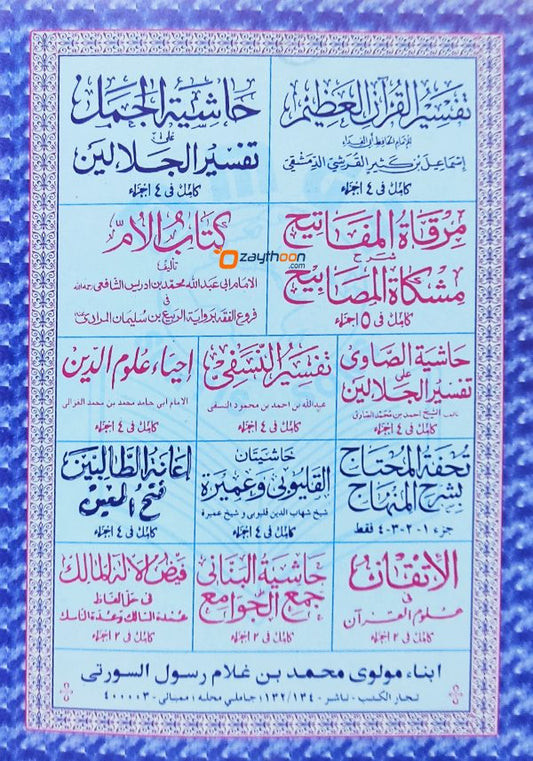 تفسير القرآن العظيم
للإمام الحافظ أبي الفداء
إسماعيل بن كثير القرشي الدمشقي
كامل في ٤ اجزاء
حاشية الجمل
على
تفسير الجلالين
كامل في ٤ اجزاء
مرقاة المفاتيح
شرح
مشكاة المصابيح
كامل في ٥ اجزاء
كتاب الأم
تأليف
الامام ابي عبد الله محمد بن ادريس الشافعي رحمه الله
في
فروع الفقه برواية الربيع بن سليمان المرادي
كامل في ٤ اجزاء
Ozaythoon
.com
حاشية الصاوى
على
تفسير الجلالين
الشيخ احمد بن محمد الصاوى
كامل في ٤ اجزاء
تفسير النسفي
عبدالله بن احمد بن محمود النسفى
كامل في ٤ اجزاء
إحياء علوم الدين
الامام ابي حامد محمد بن محمد الغزالى
كامل في ٤ اجزاء
تحفة المحتاج
بشرح المنهاج
جزء ١-٢-٣-٤ فقط
حاشيتان
القليوبى وعميرة
شيخ شهاب الدين قليوبى و شيخ عميرة
كامل في ٤ اجزاء
إعانة الطالبين
فتح المعين
كامل في ٤ اجزاء
الإتقان
في
علوم القرآن
كامل في ٢ اجزاء
حاشية البناني
على
جمع الجوامع
كامل في ٢ اجزاء
فيض الاله المالك
في حل الفاظ
عمدة السالك وعدة الناسك
كامل في ٢ اجزاء
ابناء مولوى محمد بن غلام رسول السورتى
تجار الكتب - ناشر - ١٣٢/١٣٤؛ جاملي محله؛ ممبائى - ٤٠٠٠٠٣